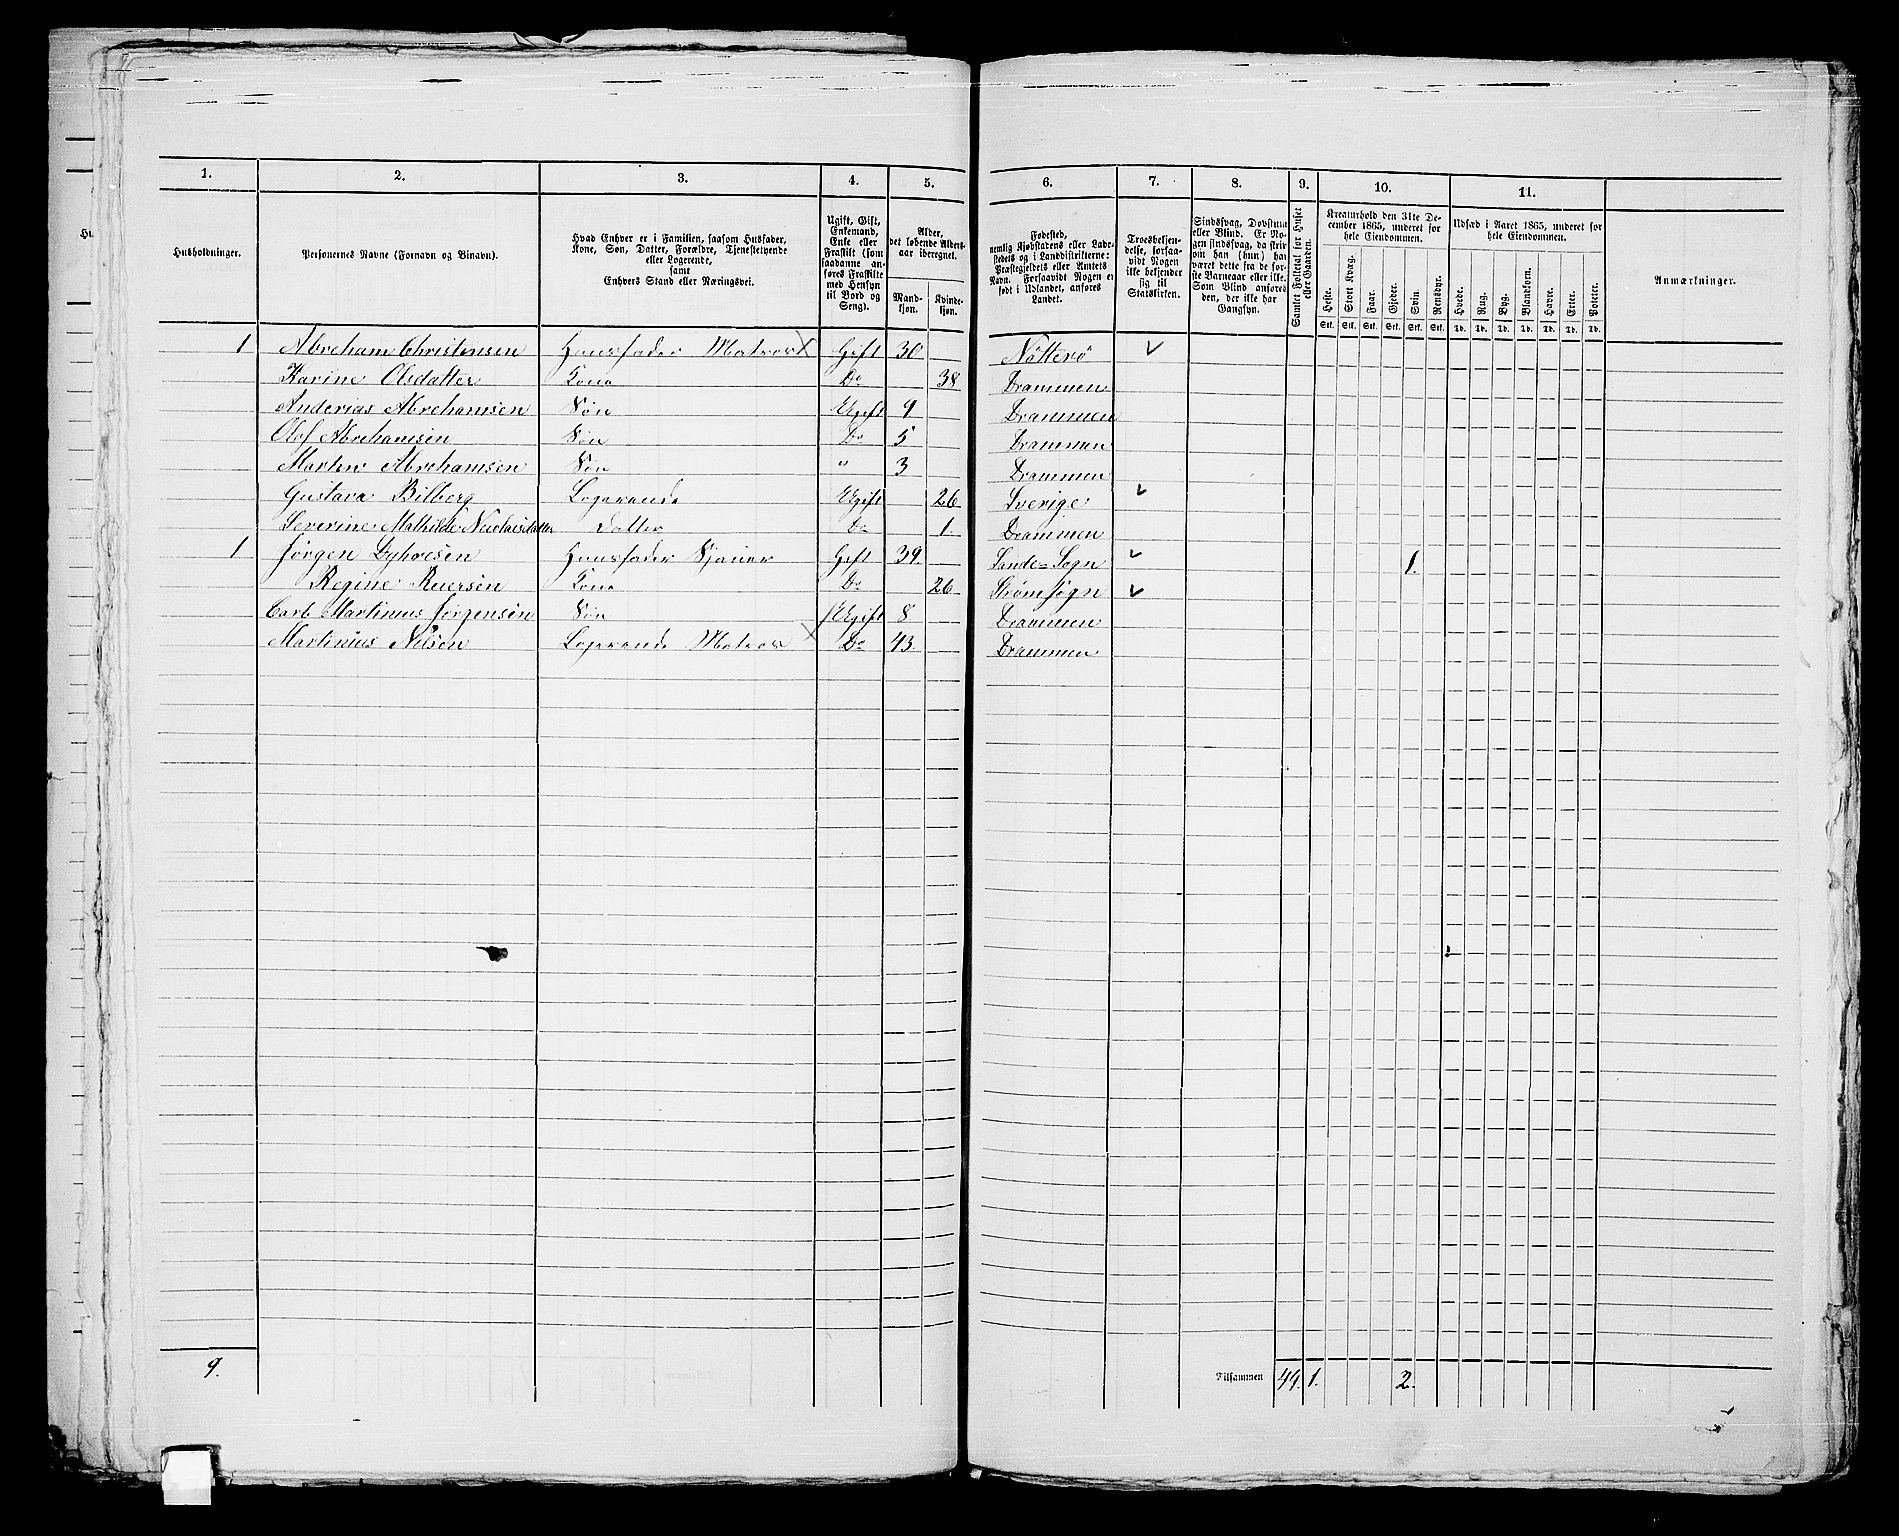 1. 2. 3. 4. 5. 6. 7. 8. 9. 10. 11.
Husholdninger.
Personernes Navne (Fornavn og Binavn).
Hvad Enhver er i Familien, saasom Husfader,
Kone, Søn, Datter, Forældre, Tjenestetyende
eller Logerende,
samt
Enhvers Stand eller Næringsvei.
Ugift, Gift,
Enkemand,
Enke eller
Fraskilt (som
saadanne an-
føres Fraskilte
med Hensyn
til Bord og
Seng).
Alder,
det løbende Alders-
aar iberegnet.
Mand-
kjøn.
Kvinde-
kjøn.
Fødested,
nemlig Kjøbstadens eller Lade-
stedets og i Landdistrikterne:
Præstegjeldets eller Amtets
Navn. Forsaavidt Nogen er
født i Udlandet, anføres
Landet.
Troesbekjen-
delse, forsaa-
vidt Nogen
ikke bekjender
sig til
Statskirken.
Sindssvag, Døvstum
eller Blind. Er No-
gen sindssvag, da skriv
om han (hun) har
været dette fra de før-
ste Barneaar eller ikke.
Som Blind anføres
den, der ikke har
Gangsyn.
Samlet Folketal for Huset
eller Gaarden.
Kreaturhold den 31te De-
cember 1865, underet for
hele Eiendommen.
Heste. Stort Kvæg. Faar. Gjeder. Svin. Rensdyr.
Stk. Stk. Stk. Stk. Stk. Stk.
Udsæd i Aaret 1865, underet for
hele Eiendommen.
Hvede. Rug. Byg. Blandkorn. Havre. Erter. Poteter.
Td. Td. Td. Td. Td. Td. Td.
Anmærkninger.
1 Abreham Christensen Huusfader Matros X Gift 30 Nötterö ✓
Karine Olsdatter Kone Do 38 Drammen
Anderias Abrehamsen Søn Ugift 9 Drammen
Olof Abrehamsen Søn Do 5 Drammen
Marten Abrehamsen Søn " 3 Drammen
Gustava Bilberg Logerende Ugift 26 Sverige ✓
Severine Mathilde Nicolaisdatter Datter Do 1 Drammen
1 Jørgen Huusfader Sjauer Gift 39. Sande-Sogn ✓ 1.
Regine Iversen Kone Do 26 Strømsogn ✓
Carl Martinus Jørgensen Søn Ugift 8 Drammen
Martinius Nilsen Logerende Matros X Do 43 Drammen
9. Tilsammen 44. 1. 2.